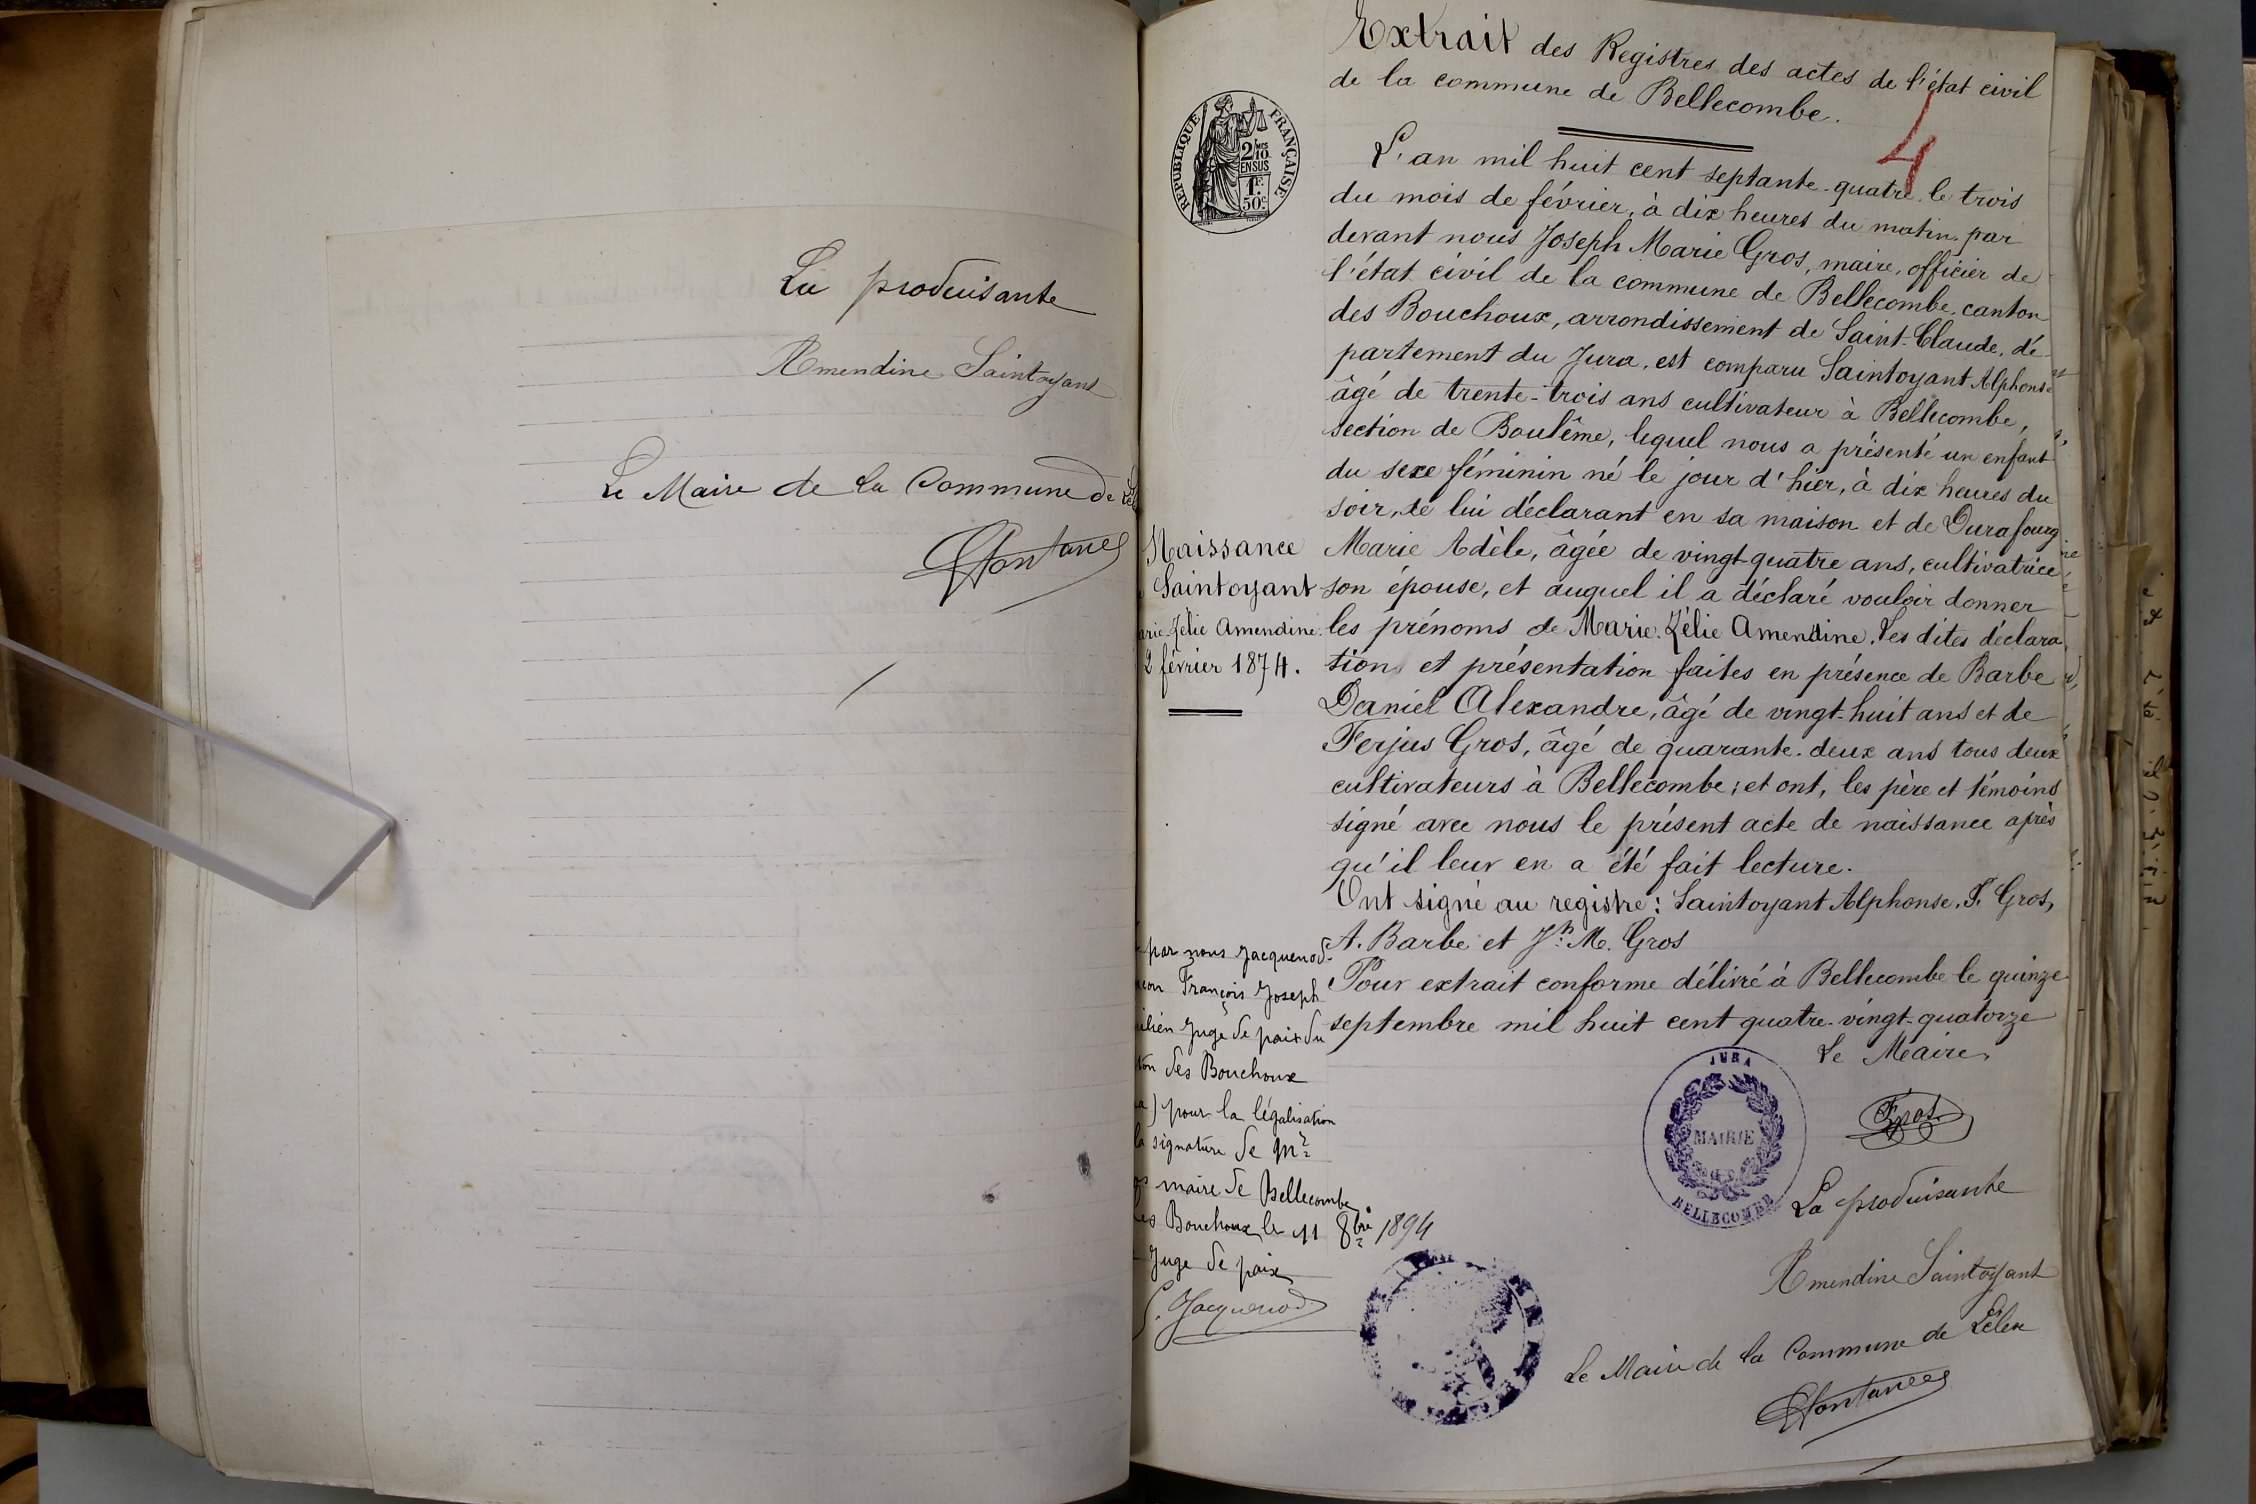 La produisante
Amendine Saintoyant
Le Maire de la Commune de Lél
Fontanes
Extrait des Registres des actes de l'état civil
de la commune de Bellecombe.
4
RÉPUBLIQUE FRANÇAISE
2/10
EN SUS
1F.
50c.
L'an mil huit cent septante-quatre le trois
du mois de février, à dix heures du matin par
devant nous Joseph Marie Gros, maire, officier de
l'état civil de la commune de Bellecombe, canton
des Bouchoux, arrondissement de Saint-Claude, dé-
partement du Jura, est comparu Saintoyant Alphonse
âgé de trente-trois ans cultivateur à Bellecombe,
section de Boulême, lequel nous a présenté un enfant
du sexe féminin né le jour d'hier, à dix heures du
soir, de lui déclarant en sa maison et de Durafourg
Marie Adèle, âgée de vingt-quatre ans, cultivatrice
son épouse, et auquel il a déclaré vouloir donner
les prénoms de Marie Zélie Amendine. Les dites déclara
tions et présentation faites en présence de Barbe
Daniel Alexandre, âgé de vingt-huit ans et de
Ferjus Gros, âgé de quarante-deux ans tous deux
cultivateurs à Bellecombe; et ont, les père et témoins
signé avec nous le présent acte de naissance après
qu'il leur en a été fait lecture.
Ont signé au registre: Saintoyant Alphonse, F. Gros,
A. Barbe et Jh. M. Gros
Pour extrait conforme délivré à Bellecombe le quinze
septembre mil huit cent quatre-vingt-quatorze
Le Maire,
Gros
JURA
MAIRIE
BELLECOMBE
La produisante
Amendine Saintoyant
Le Maire de la Commune de Lélex
Fontanes
Naissance
Saintoyant
arie Zélie Amendine.
2 février 1874.
par nous Jacquenod-
François Joseph
ilien Juge de paix du
ton des Bouchoux
a) pour la légalisation
la signature de Mr
os maire de Bellecombe
Les Bouchoux le 11 8bre 1894
Juge de paix
Jacquenod